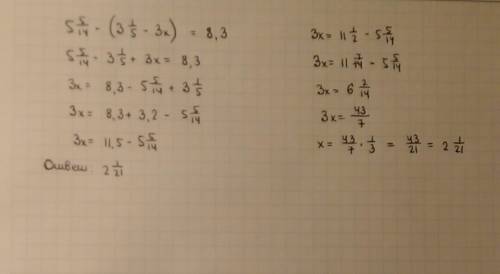 5 5/14 - (3 1/5 - 3x) = 8,3
5 5/14 - 3 1/5 + 3x = 8,3
3x = 8,3 - 5 5/14 + 3 1/5
3x = 8,3 + 3,2 - 5 5/14
3x = 11,5 - 5 5/14
Ответ: 2 1/21
3x = 11 1/2 - 5 5/14
3x = 11 7/14 - 5 5/14
3x = 6 2/14
3x = 43/7
x = 43/7 · 1/3 = 43/21 = 2 1/21